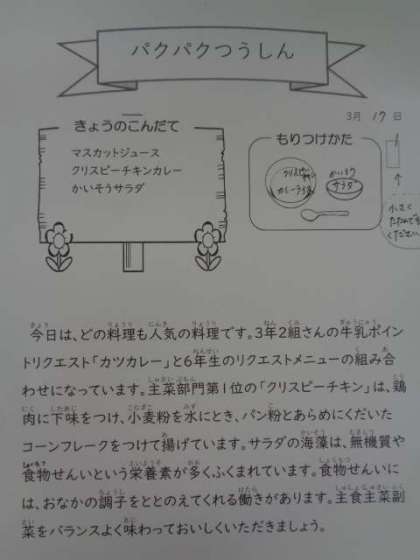 パクパクつうしん
3月 17 日
きょうのこんだて
マスカットジュース
クリスピーチキンカレー
かいそうサラダ
もりつけかた
クリスピーチキン
カレーライス
かいそう
サラダ
小さく
たたんで
ください
今日は、どの料理も人気の料理です。3年2組さんの牛乳ポイン
トリクエスト「カツカレー」と6年生のリクエストメニューの組み合
わせになっています。主菜部門第1位の「クリスピーチキン」は、鶏
肉に下味をつけ、小麦粉を水にとき、パン粉とあらめにくだいた
コーンフレークをつけて揚げています。サラダの海藻は、無機質や
食物せんいという栄養素が多くふくまれています。食物せんいに
は、おなかの調子をととのえてくれる働きがあります。主食主菜副
菜をバランスよく味わっておいしくいただきましょう。